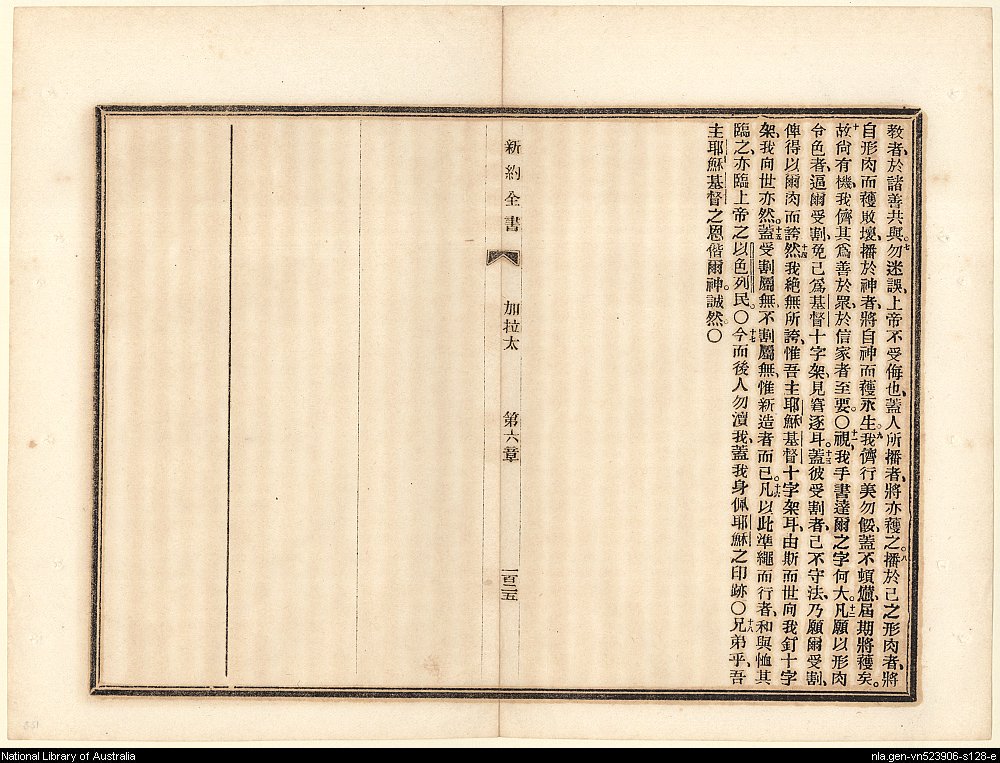 教者、於諸善共與。七勿迷誤、上帝不受侮也、蓋人所播者、將亦穫之。八播於己之形肉者、將
自形肉而穫敗壞、播於神者、將自神而穫永生。九我儕行美勿餒、蓋不頓憊、屆期將穫矣。
十故尚有機、我儕其爲善於眾、於信家者至要。〇十一視、我手書達爾之字何大。十二凡願以形肉
令色者、逼爾受割、免己爲基督十字架、見窘逐耳。十三蓋彼受割者、己不守法、乃願爾受割、
俾得以爾肉而誇。十四然我絕無所誇、惟吾主耶穌基督十字架耳、由斯而世向我釘十字
架、我向世亦然。十五蓋受割屬無、不割屬無、惟新造者而已。十六凡以此準繩而行者、和與恤其
臨之、亦臨上帝之以色列民。〇十七今而後人勿瀆我、蓋我身佩耶穌之印跡。〇十八兄弟乎、吾
主耶穌基督之恩、偕爾神、誠然。〇
新約全書
加拉太
第六章
一百二五
National Library of Australia
nla.gen-vn523906-s128-e